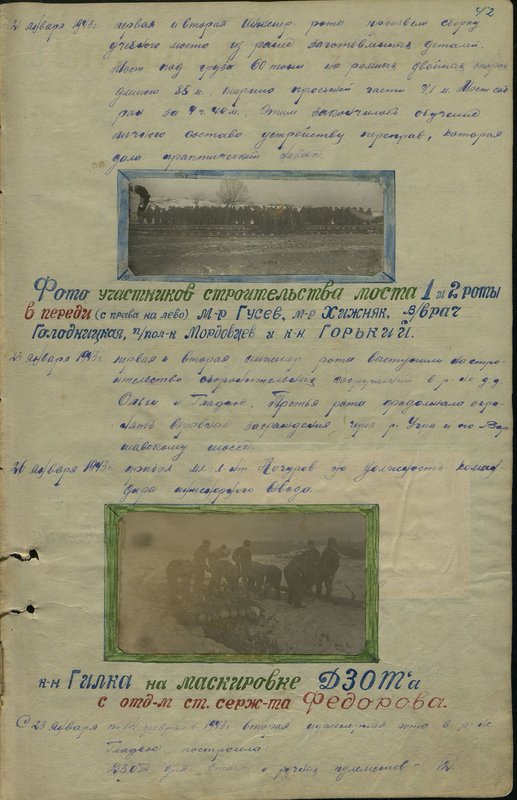 42
21 января 1943г. первая и вторая инженер. роты произвели сборку
учебного моста из ранее заготовленных деталей.
Мост под груз 60 тонн на рамных двойных опорах
длиною м., ширина проезжей части м. Мост соб
ран за 4 ч. м. Этим закончилось обучение
личного состава устройству переправ, которая
дала практический
Фото участников строительства моста 1 и 2 роты
в переди (с права на лево) м-р Гусев, м-р Хижняк, в/врач
Голодницкая, п/пол-к Мордовцев и к-н Горький.
23 января 1943г. первая и вторая инженер. рота выступили на стро-
ительство оборонительных сооружений в р-не д.д.
и Гладкое. Третья рота продолжала
заграждения через р. Угра и по Вар
шавскому шоссе.
26 января 1943г. прибыл мл. л-т на должность коман
дира инженерного взвода.
к-н Гилка на маскировке ДЗОТ'а
с отд-м ст. серж-та Федорова.
С 23 января по февраля 1943г. вторая инженерная рота в р-не
Гладкое, построила:
ДЗОТ для и ручных пулеметов -